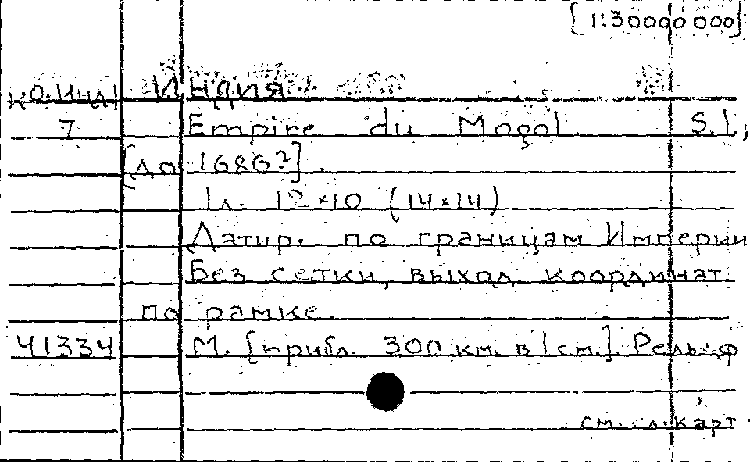 [1:30000000]
ко.инд Индия
7 Empire du Mogol S.l,
[до 1686?].
1л. 12×10 (14×14)
Датир. по границам Империи
Без сетки, выход координат
по рамке.
41334 М. [прибл. 300 км. в 1 см.]. Рельеф
см. карт